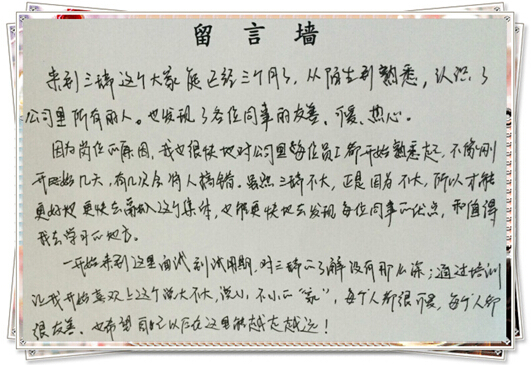 留言墙
来到三辩这个大家庭已经三个月了,从陌生到熟悉,认识了
公司里所有的人。也发现了各位同事的友善、可爱、热心。
因为岗位的原因,我也很快地对公司里每位员工都开始熟悉起,不像刚
开始几天,有几次会将人搞错。虽然三辩不大,正是因为不大,所以才能
更好地更快去融入这个集体,也能更快地去发现每位同事的优点,和值得
我去学习的地方。
一开始来到这里面试到试用期,对三辩的了解没有那么深;通过培训
让我开始喜欢上这个说大不大,说小,不小的“家”,每个人都很可爱,每个人都
很友善,也希望自己以后在这里能越走越远!